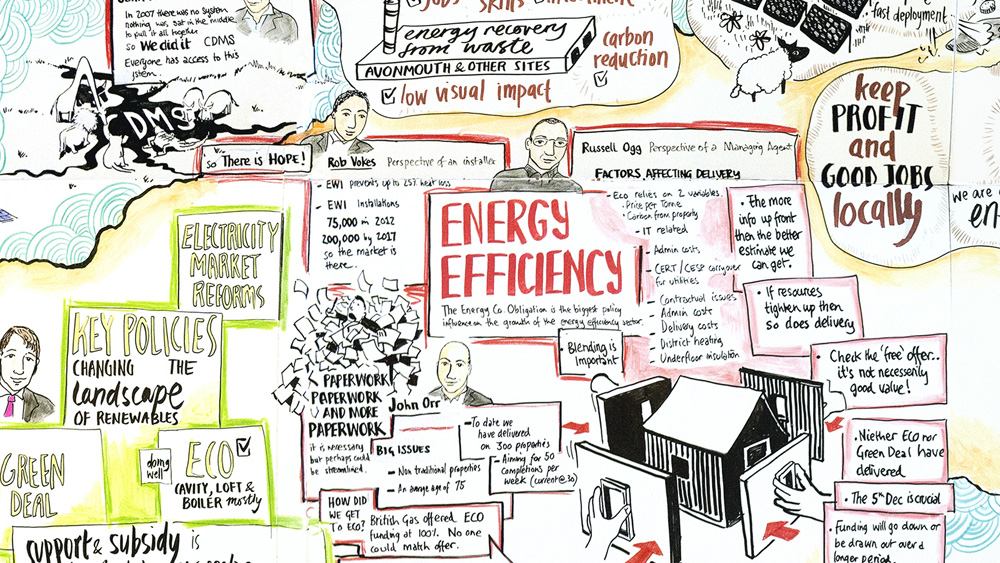 In 2007 there was no system
nothing was sat in the middle
to pull it all together
so We did it CDMS
Everyone has access to this
CDMS
so There is HOPE!
skills
energy recovery
from waste
AVONMOUTH & OTHER SITES
low visual impact
carbon
reduction
fast deployment
keep
PROFIT
and
GOOD JOBS
locally
we are
en
Rob Vokes Perspective of an installer
- EWI prevents up to 25% heat loss
- EWI Installations
75,000 in 2012
200,000 by 2017
so the market is
there...
Russell Ogg Perspective of a Managing Agent
FACTORS AFFECTING DELIVERY
- Eco relies on 2 variables.
· Price per Tonne
· Carbon from property
- IT related
- Admin costs
- CERT/CESP carryover
for utilities
- Contractual issues
- Admin cost
- Delivery costs
- District heating
- Underfloor insulation
ENERGY
EFFICIENCY
The Energy Co. Obligation is the biggest policy
influence on the growth of the energy efficiency sector.
Blending is
Important
• The more
info up front
then the better
estimate we
can get.
• If resources
tighten up then
so does delivery
• Check the 'free' offer..
it's not necessenly
good value!
• Niether ECO nor
Green Deal have
delivered
• The 5th Dec is crucial
• Funding will go down or
be drawn out over a
longer period.
ELECTRICITY
MARKET
REFORMS
KEY POLICIES
CHANGING THE
landscape
OF RENEWABLES
GREEN
DEAL
doing
well
ECO
CAVITY, LOFT &
BOILER mostly
support & subsidy is
PAPERWORK
PAPERWORK
AND MORE
PAPERWORK
it is necessary
but perhaps could
be streamlined.
John Orr
BIG ISSUES
- Non traditional properties
- An average age of 75
- To date we
have delivered
on 300 properties
- Aiming for 50
completions per
week (current @ 30)
HOW DID
WE GET
TO ECO?
British Gas offered ECO
funding at 100%. No one
could match offer.